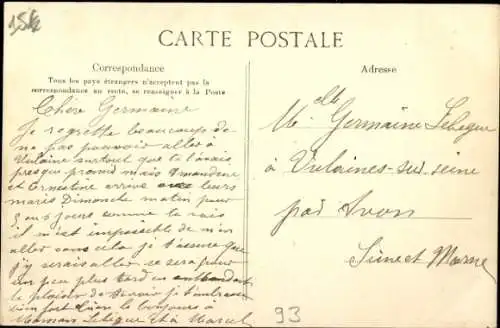 15k
CARTE POSTALE
Correspondance
Tous les pays étrangers n'acceptent pas la
correspondance au recto, se renseigner à la Poste
Chère Germaine
Je regrette beaucoup de
ne pas pouvoir aller à
Vulaine surtout que te l'avais
presque promis mais Amandine
et Ernestine arrive avec leurs
maris Dimanche matin pour
5 ou 6 jours comme tu vois
il m'est impossible de m'en
aller sans cela je t'assure que
j'y serais aller ce sera pour
un peu plus tard en attendant
le plaisir de te revoir je t'embrasse
bien fort bien le bonjours à
Maman Lebègue et à Marcel
Adresse
Melle Germaine Lebègue
à Vulaines-sur-seine
par Avon
Seine et Marne
93